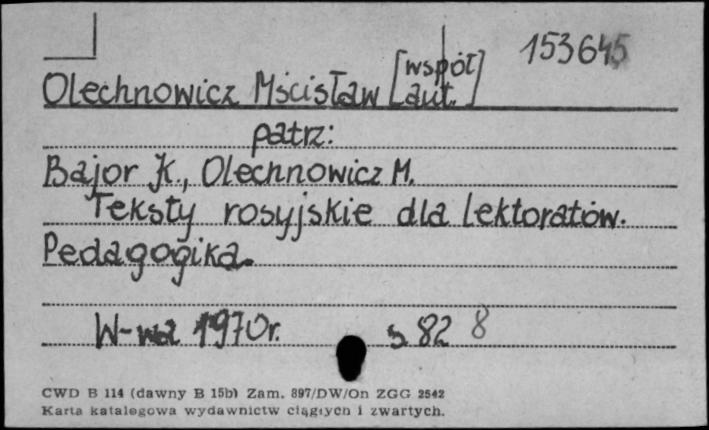 153645
Olechnowicz Mścisław [współ
aut.]
patrz:
Bajor K., Olechnowicz M.
Teksty rosyjskie dla lektoratów.
Pedagogika.
W-wa 1970r. s 82 8
CWD B 114 (dawny B 15b) Zam. 897/DW/On ZGG 2542
Karta katalogowa wydawnictw ciągłych i zwartych.